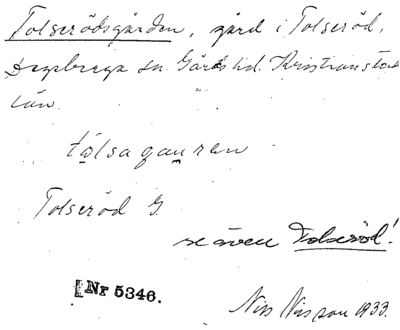 Tolserödsgården, gård i Tolseröd,
Degeberga sn. Gärds hd. Kristianstads
län.
tålsagauren
Tolseröd G.
se även Tolseröd!
[Nr 5346.
Nils Nilsson 1933.